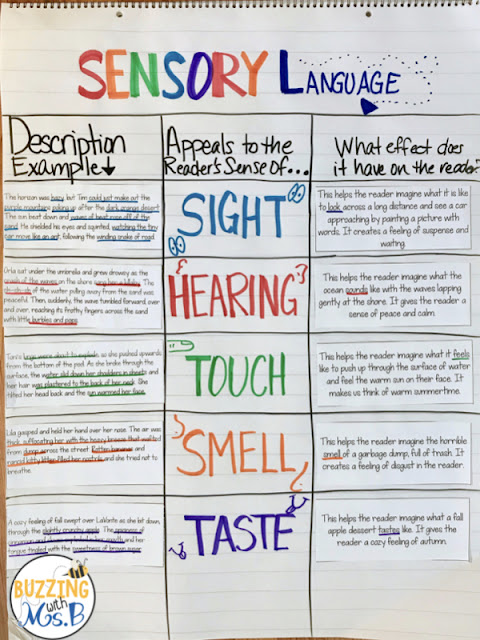 SENSORY LANGUAGE
Description
Example
Appeals to the
Reader's Sense of...
What effect does
it have on the reader?
The horizon was hazy, but Tim could just make out the
purple mountains poking up after the dark orange desert.
The sun beat down and waves of heat rose off of the
sand. He shielded his eyes and squinted, watching the tiny
car move like an ant, following the winding snake of road.
SIGHT
This helps the reader imagine what it is like
to look across a long distance and see a car
approaching by painting a picture with
words. It creates a feeling of suspense and
waiting.
Orla sat under the umbrella and grew drowsy as the
crash of the waves on the shore sang her a lullaby. The
of the water pulling away from the sand was
peaceful. Then, suddenly, the wave tumbled forward, over
and over, reaching its frothy fingers across the sand
with little burbles and pops.
HEARING
This helps the reader imagine what the
ocean sounds like with the waves lapping
gently at the shore. It gives the reader a
sense of peace and calm.
lungs were about to explode, so she pushed upwards
from the bottom of the pool. As she broke through the
surface, the water slid down her shoulders in sheets and
her hair was plastered to the back of her neck. She
tilted her head back and the sun warmed her face.
TOUCH
This helps the reader imagine what it feels
like to push up through the surface of water
and feel the warm sun on their face. It
makes us think of warm summertime.
Lila gasped and held her hand over her nose. The air was
thick, suffocating her with the heavy breeze that wafted
from dump across the street. Rotten bananas and
rancid kitty litter filled her nostrils and she tried not to
breathe.
SMELL
This helps the reader imagine the horrible
smell of a garbage dump, full of trash. It
creates a feeling of disgust in the reader.
A cozy feeling of fall swept over LaVayta as she let down,
through the slightly crunchy apple. The
cinnamon and and
her tongue tingled with the sweetness of brown sugar.
TASTE
This helps the reader imagine what a fall
apple dessert tastes like. It gives the
reader a cozy feeling of autumn.
BUZZING
with
Ms.B